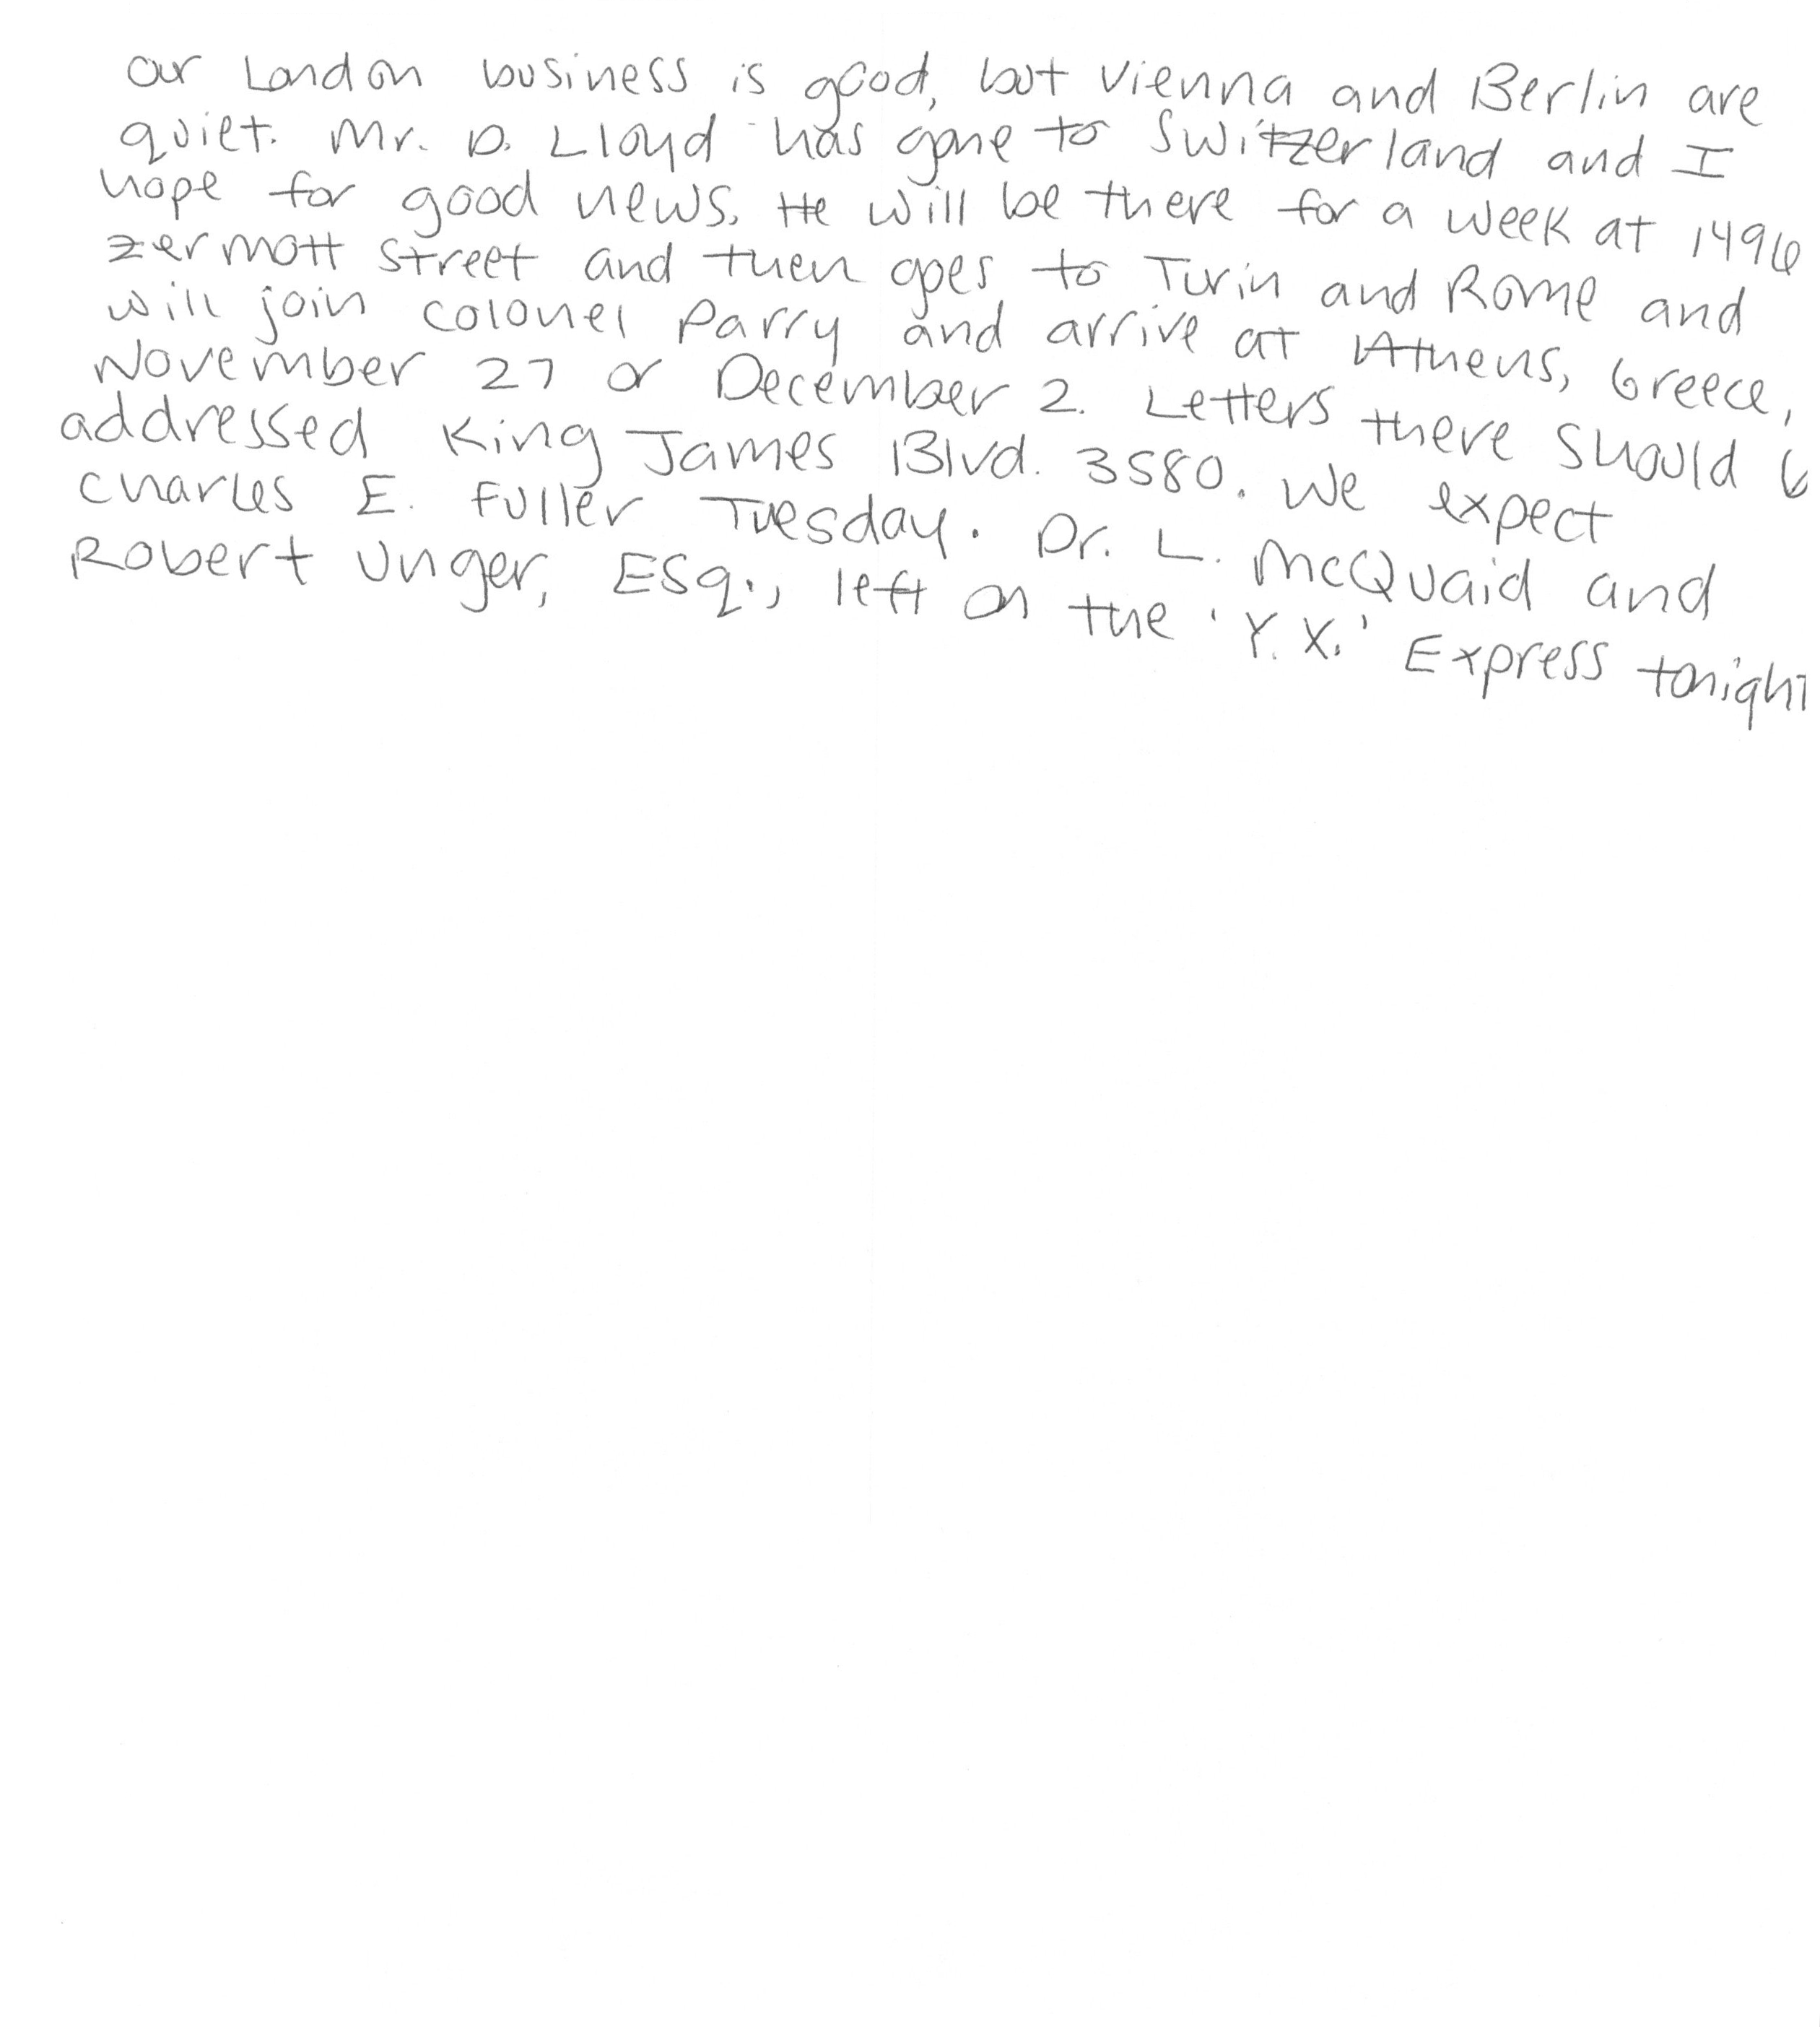 Our London business is good, but Vienna and Berlin are
quiet. Mr. D. Lloyd has gone to Switzerland and I
hope for good news. He will be there for a week at 1496
Zermott Street and then goes to Turin and Rome and
will join Colonel Parry and arrive at Athens, Greece,
November 27 or December 2. Letters there should
addressed King James Blvd. 3580. We expect
Charles E. Fuller Tuesday. Dr. L. McQuaid and
Robert Unger, Esq., left on the 'Y.X.' Express tonight